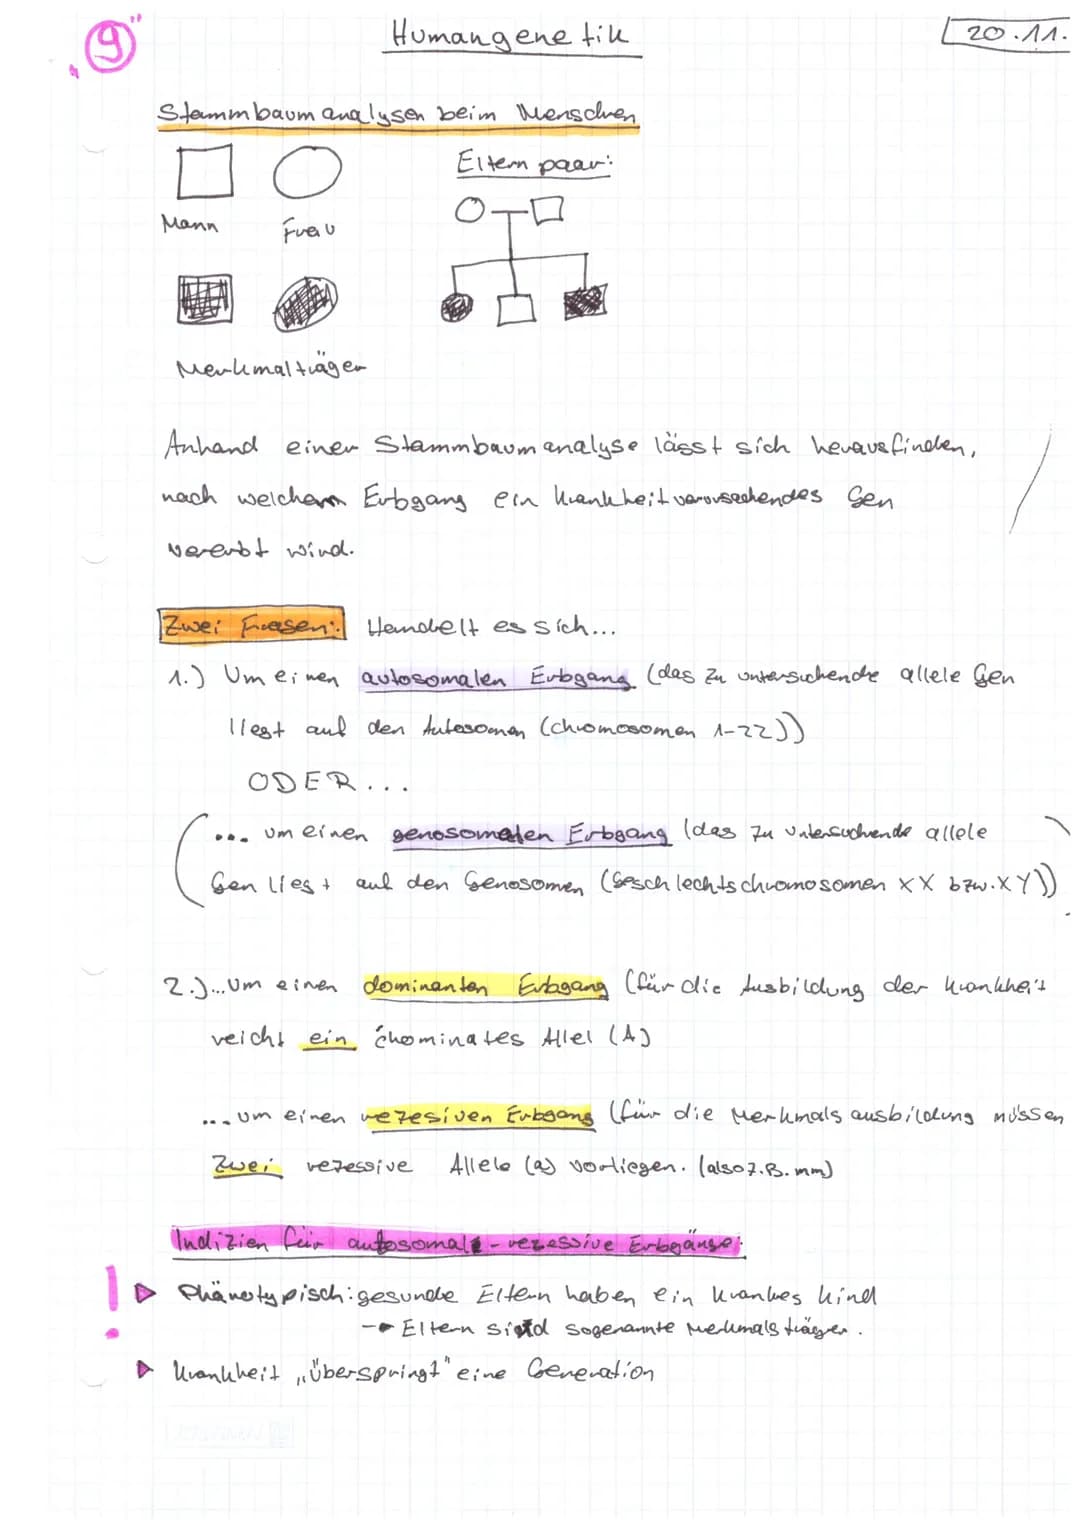 „9"
Humangenetik
20.11.
Stammbaumanalysen beim Menschen
Mann
Frau
Elternpaar:
Merkmalträger
Anhand einer Stammbaumanalyse lässt sich herausfinden,
nach welchem Erbgang ein krankheitverursachendes Gen
vererbt wird.
Zwei Fragen: Handelt es sich...
1.) Um einen autosomalen Erbgang (das zu untersuchende allele Gen
liegt auf den Autosomen (Chromosomen 1-22))
ODER...
... um einen genosomalen Erbgang (das zu untersuchende allele
Gen liegt auf den Genosomen (Geschlechtschromosomen XX bzw. XY))
2.)... Um einen dominanten Erbgang (für die Ausbildung der Krankheit
reicht ein dominates Allel (A)
... um einen rezesiven Erbgang (für die Merkmalsausbildung müssen
Zwei rezessive Allele (a) vorliegen. (also z.B. mm)
Indizien für autosomal-rezessive Erbgänge:
! Phänotypisch: gesunde Eltern haben ein krankes Kind
→ Eltern sind sogenannte Merkmalsträger.
Krankheit „überspringt" eine Generation